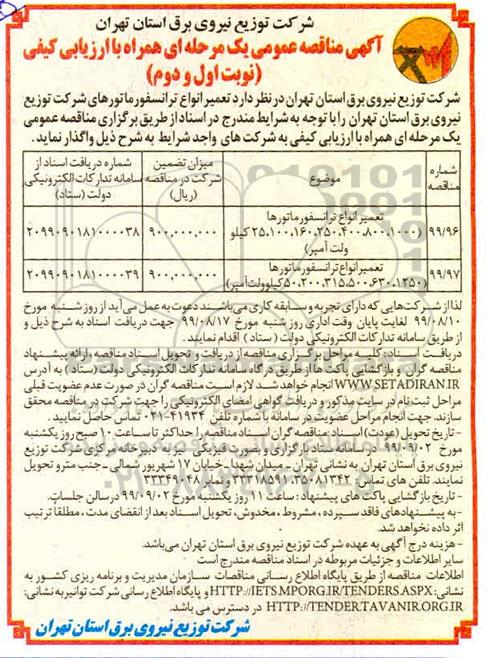 شرکت توزیع نیروی برق استان تهران
آگهی مناقصه عمومی یک مرحله ای همراه با ارزیابی کیفی
(نوبت اول و دوم)
شرکت توزیع نیروی برق استان تهران در نظر دارد تعمیر انواع ترانسفورماتورهای شرکت توزیع
نیروی برق استان تهران را با توجه به شرایط مندرج در اسناد از طریق برگزاری مناقصه عمومی
یک مرحله ای همراه با ارزیابی کیفی به شرکت های واجد شرایط به شرح ذیل واگذار نماید.
شماره مناقصه
موضوع
میزان تضمین شرکت در مناقصه (ریال)
شماره دریافت اسناد از سامانه تدارکات الکترونیکی دولت (ستاد)
۹۹/۹۶
تعمیر انواع ترانسفورماتورها
(۲۵،۱۰۰،۱۶۰،۲۵۰،۴۰۰،۸۰۰،۱۰۰۰ کیلو
ولت آمپر)
۹۰۰,۰۰۰,۰۰۰
۲۰۹۹۰۹۰۱۸۱۰۰۰۰۳۸
۹۹/۹۷
تعمیر انواع ترانسفورماتورها
(۵۰،۲۰۰،۳۱۵،۵۰۰،۶۳۰،۱۲۵۰ کیلوولت آمپر)
۹۰۰,۰۰۰,۰۰۰
۲۰۹۹۰۹۰۱۸۱۰۰۰۰۳۹
لذا از شرکت‌هایی که دارای تجربه و سابقه کاری می‌باشند دعوت به عمل می آید از روز شنبه مورخ
۹۹/۰۸/۱۰ لغایت پایان وقت اداری روز شنبه مورخ ۹۹/۰۸/۱۷ جهت دریافت اسناد به شرح ذیل و
از طریق سامانه تدارکات الکترونیکی دولت (ستاد) اقدام نمایند.
دریافت اسناد: کلیه مراحل برگزاری مناقصه از دریافت و تحویل اسناد مناقصه، ارائه پیشنهاد
مناقصه گران و بازگشایی پاکت ها از طریق درگاه سامانه تدارکات الکترونیکی دولت (ستاد) به آدرس
WWW.SETADIRAN.IR انجام خواهد شد. لازم است مناقصه گران در صورت عدم عضویت قبلی
مراحل ثبت نام در سایت مذکور و دریافت گواهی امضای الکترونیکی را جهت شرکت در مناقصه محقق
سازند. جهت انجام مراحل عضویت در سامانه با شماره تلفن ۴۱۹۳۴-۰۲۱ تماس حاصل نمایید.
- تاریخ تحویل (عودت) اسناد: مناقصه گران اسناد مناقصه را حداکثر تا ساعت ۱۰ صبح روز یکشنبه
مورخ ۹۹/۰۹/۰۲ در سامانه ستاد بارگزاری و بصورت فیزیکی نیز به دبیرخانه مرکزی شرکت توزیع
نیروی برق استان تهران به نشانی تهران - میدان شهدا - خیابان ۱۷ شهریور شمالی - جنب مترو تحویل
نمایند. تلفن های تماس: ۳۵۰۸۱۳۴۲، ۳۳۳۱۸۵۹۱ و نمابر ۳۳۳۴۹۰۴۸
- تاریخ بازگشایی پاکت های پیشنهاد: ساعت ۱۱ روز یکشنبه مورخ ۹۹/۰۹/۰۲ در سالن جلسات.
- به پیشنهادهای فاقد سپرده، مشروط، مخدوش، تحویل اسناد بعد از انقضای مدت، مطلقا ترتیب
اثر داده نخواهد شد.
- هزینه درج آگهی به عهده شرکت توزیع نیروی برق استان تهران می‌باشد.
سایر اطلاعات و جزئیات مربوطه در اسناد مناقصه مندرج است
اطلاعات مناقصه از طریق پایگاه اطلاع رسانی مناقصات سازمان مدیریت و برنامه ریزی کشور به
نشانی: HTTP://IETS.MPORG.IR/TENDERS.ASPX و پایگاه اطلاع رسانی شرکت توانیر به نشانی:
HTTP://TENDER.TAVANIR.ORG.IR در دسترس می باشد.
شرکت توزیع نیروی برق استان تهران